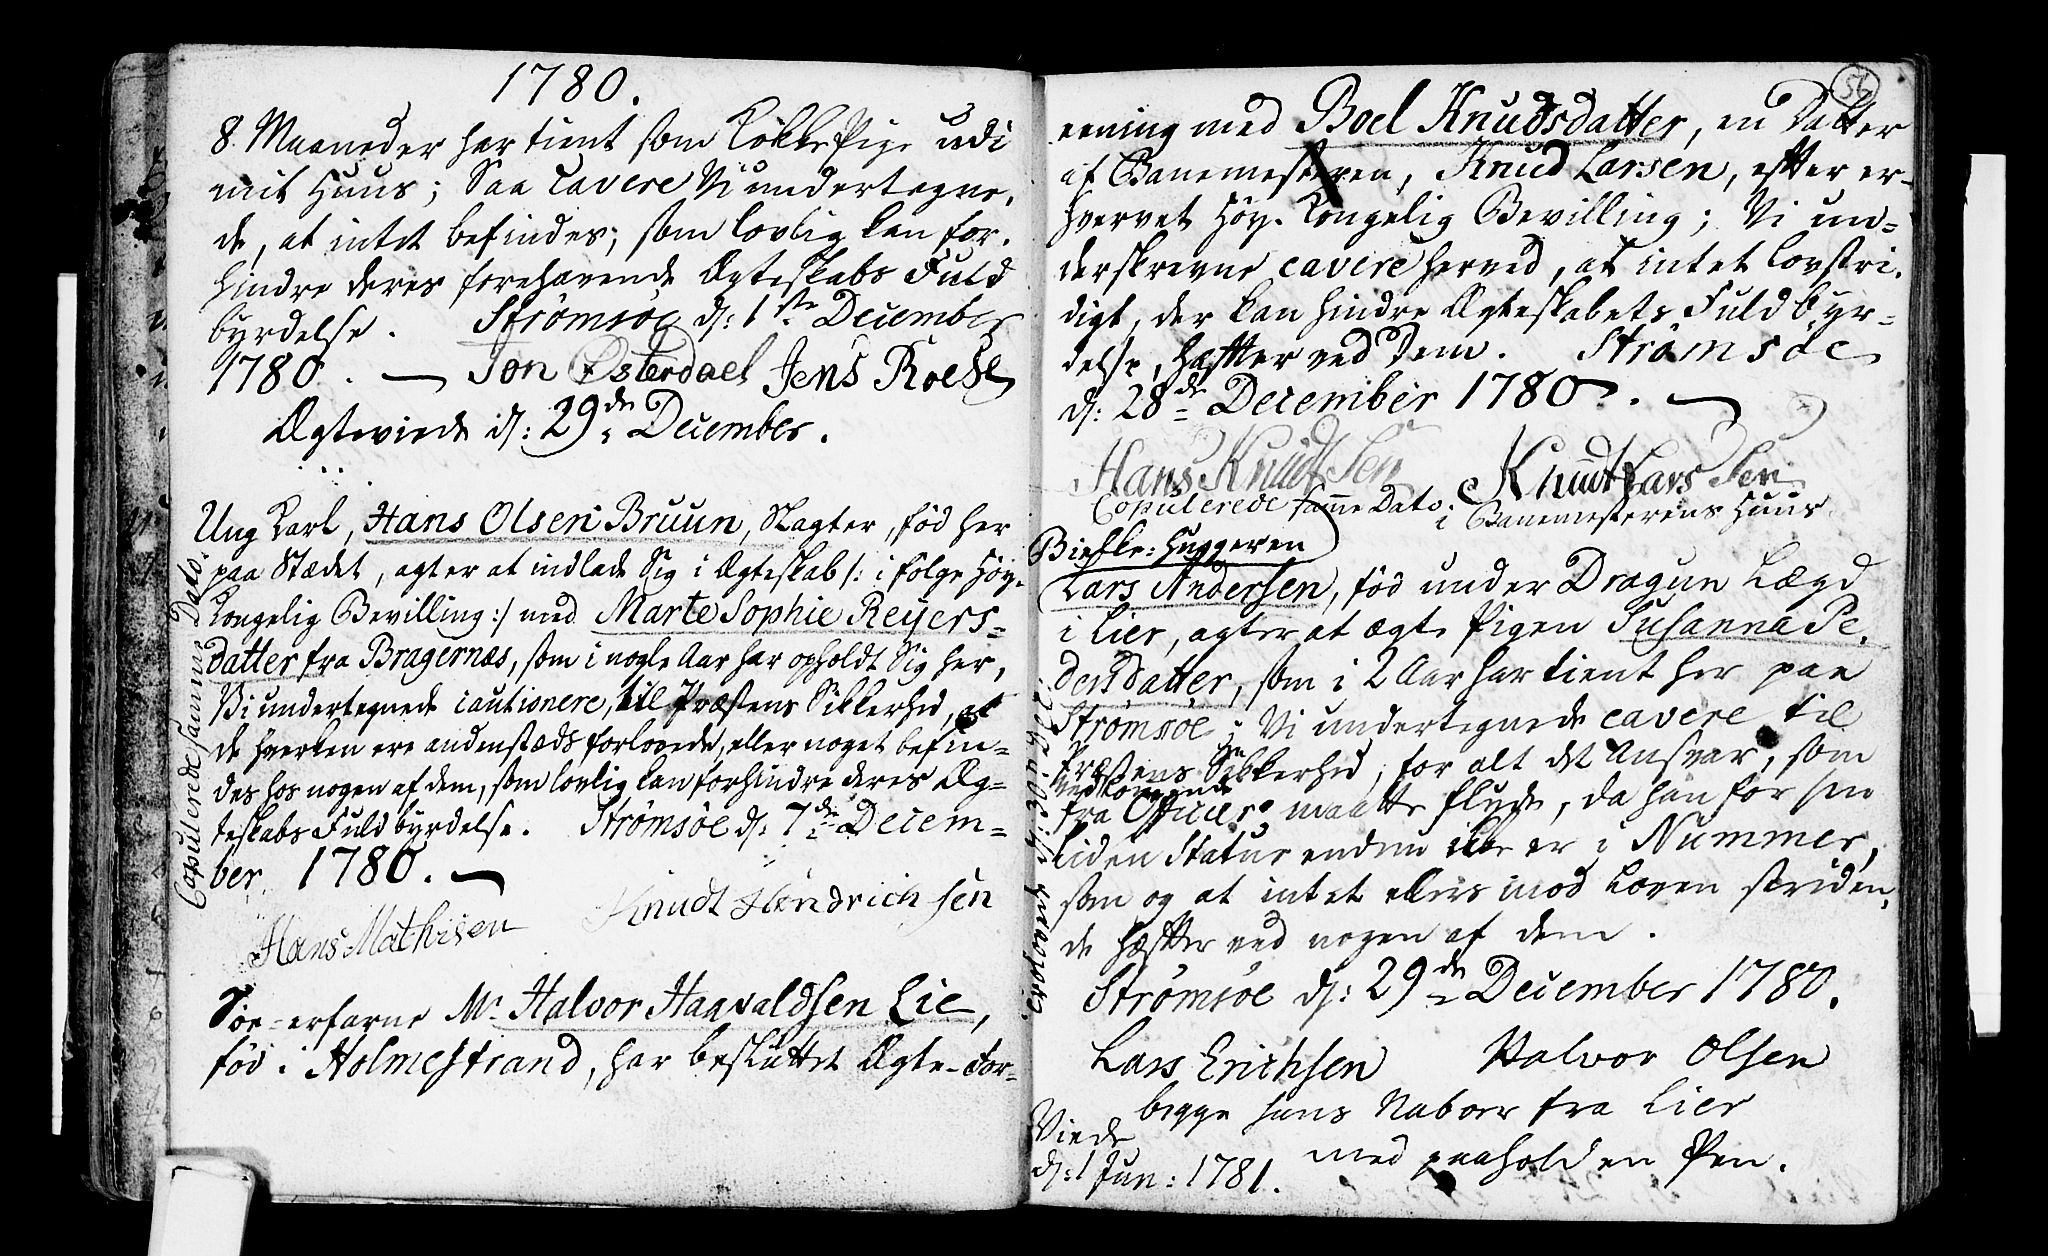 1780.
8. Maaneder har tient som Kokke Pige udi
mit Huus; Saa cavere Vi undertegne,
de, at intet befindes, som lovlig kan for,
hindre deres forehavende Ægteskabs Fuld
byrdelse. Strømsøe d: 1ste December
1780. — Jon Østerdael Jens Roese
Ægteviede d: 29de December.
Ung Karl, Hans Olsen Bruun, Slagter, fød her
paa Stædet, agter at indlade Sig i Ægteskab /: i følge Høy-
Kongelig Bevilling :/ med Marte Sophie Reyers=
datter fra Bragernæs, som i nogle Aar har opholdt Sig her,
Vi undertegnede cautionere, til Præstens Sikkerhed, at
de hverken ere andenstæds forlovede, eller noget befin=
des hos nogen af dem, som lovlig kan forhindre deres Æg=
teskabs Fuldbyrdelse. Strømsøe d: 7de Decem=
ber 1780. —
Hans Mathisen Knudt Hendrichsen
Copulerede samme Dato.
Søe-erfarne Mr. Halvor Haavaldsen Lie,
fød i Holmestrand, har besluttet Ægte-For=
56
eening med Boel Knudsdatter, en Datter
af Banemesteren, Knud Larsen, efter er-
hvervet Høy-Kongelig Bevilling; Vi un=
derskrevne cavere herved, at intet lovstri,
digt, der kan hindre Ægteskabets Fuldbyr=
delse, hæfter ved Dem. Strømsøe
d: 28de December 1780. —
Hans Knudtsen Knudt Larssen
Copulerede samme Dato i Banemesterens Huus
Huggeren
Lars Andersen, fød under Dragun Lægd
i Lier, agter at ægte Pigen Susanna Pe,
dersdatter, som i 2 Aar har tient her paa
Strømsøe; Vi undertegnede cavere til
Præstens Sikkerhed, for alt det Ansvar, som
vedkommende
fra Officer maatte flyde, da han for sin
liden Statur endnu ikke er i Nummer,
som og at intet ellers mod Loven striden,
de hæfter ved nogen af dem.
Strømsøe d: 29de December 1780.
Lars Erichsen Halvor Olsen
begge hans Naboer fra Lier
med paaholden Pen.
Trolovede d: 30 Dec:
Viede
d: 1 Jan: 1781.